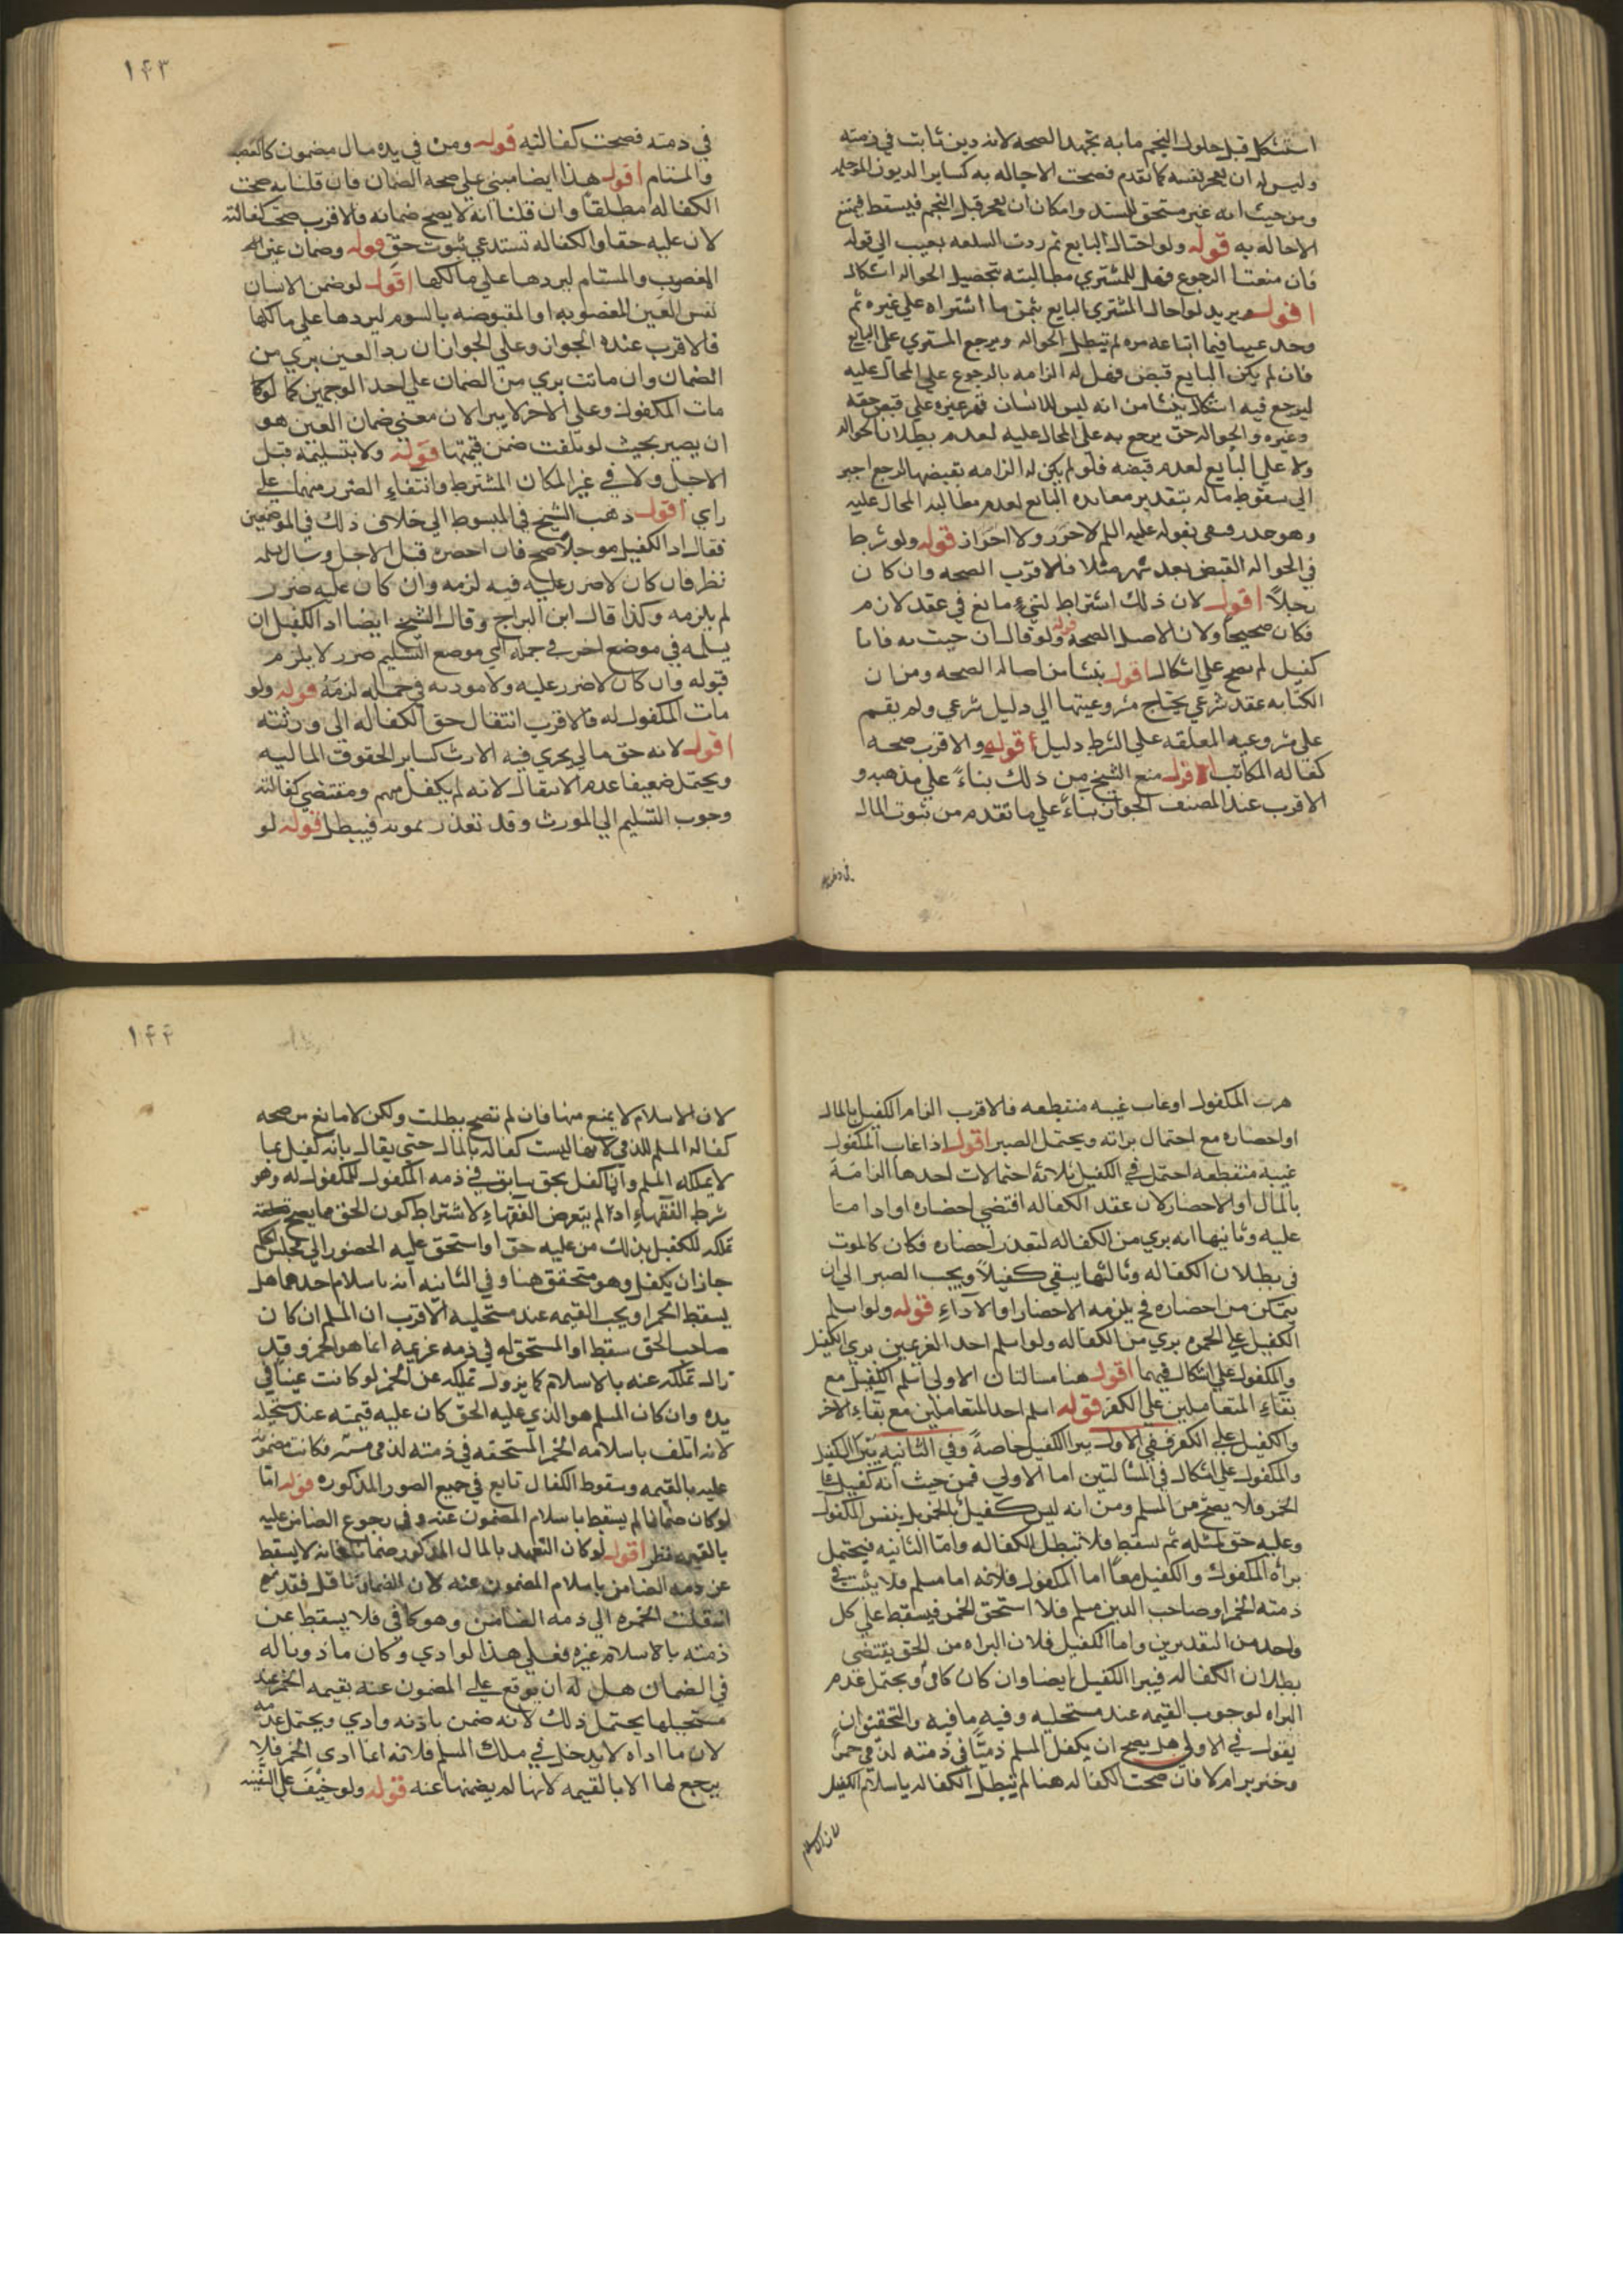 استشكل قبل حلول النجم مابه تجهد الصحه لانه دين ثابت في ذمته
وليس له ان يعجز نفسه كما تقدم فصحت الاحاله به كساير الديون الموجله
ومن حيث انه غير مستحق للسيد وامكان ان يعجز قبل النجم فيسقط فيمتنع
الاحاله به قوله ولو احتال البايع ثم ردت السلعه بعيب الي قوله
فان منعنا الرجوع فهل للمشتري مطالبته بتحصيل الحواله اشكال
اقول يريد لو احال المشتري البايع بثمن ما اشتراه علي غيره ثم
وجد عيبا فيما ابتاعه منه لم تبطل الحواله ويرجع المشتري علي البايع
فان لم يكن البايع قبض فهل له الزامه بالرجوع علي المحال عليه
ليرجع فيه اشكال ينشا من انه ليس للانسان قهر غيره علي قبض حقه
وغيره والحواله حق يرجع به علي المحال عليه لعدم بطلان الحواله
ولا علي البايع لعدم قبضه فلو لم يكن له الزامه بقبضها لرجع اجبر
الي سقوط ماله بتقدير معانده البايع لعدم مطالبه المحال عليه
وهو ضرر بقوله عليه السلم لا ضرر ولا اضرار قوله ولو شرط
في الحواله القبض بعد شهر مثلا فالاقرب الصحه وان كان
حالاً اقول لان ذلك اشتراط لشيء سائغ في عقد لازم
فكان صحيحا ولان الاصل الصحه قوله ولو قال ان جيت به فانا
كفيل لم يصح علي اشكال اقول ينشا من اصاله الصحه ومن ان
الكتابه عقد شرعي يحتاج مشروعيتها الي دليل شرعي ولم يقم
علي مشروعيه المعلقه علي الشرط دليل قوله والاقرب صحه
كفاله المكاتب اقول منع الشيخ من ذلك بناءً علي مذهبه و
الاقرب عند المصنف الجواز بناءً علي ما تقدم من ثبوت المال
في ذمته
١٤٣
في ذمته فصحت كفالته قوله ومن في يده مال مضمون كالغصب
والمستام اقول هذا ايضا مبني علي صحه الضمان فان قلنا به صحت
الكفاله مطلقا وان قلنا انه لا يصح ضمانه فالاقرب صحه كفالته
لان عليه حقا والكفاله تستدعي ثبوت حق قوله وضمان عين
المغصوب والمستام ليردها علي مالكها اقول لو ضمن الانسان
نفس العين المغصوبه او المقبوضه بالسوم ليردها علي مالكها
فالاقرب عنده الجواز وعلي الجواز ان رد العين بري من
الضمان وان ماتت بري من الضمان علي احد الوجهين كما لو
مات المكفول وعلي الاخر لا يبرا لان معني ضمان العين هو
ان يصير بحيث لو تلفت ضمن قيمتها قوله ولا بتسليمه قبل
الاجل ولا في غير المكان المشترط وانتفاء الضرر منهما علي
راي اقول ذهب الشيخ في المبسوط الي خلاف ذلك في الموضعين
فقال اذا كفيل موجلاً صح فان احضره قبل الاجل وسال
نظر فان كان لا ضرر عليه فيه لزمه وان كان عليه ضرر
لم يلزمه وكذا قال ابن البراج وقال الشيخ ايضا اذا كفيل ان
يسلمه في موضع اخر في حمله الي موضع التسليم ضرر لا يلزم
قبوله وان كان لا ضرر عليه ولا مونه في حمله لزمه قوله ولو
مات المكفول له فالاقرب انتقال حق الكفاله الي ورثته
اقول لانه حق مالي يجري فيه الارث كساير الحقوق الماليه
ويحتمل ضعيفا عدم الانتقال لانه لم يكفل لهم ومقتضي كفالته
وجوب التسليم الي المورث وقد تعذر بموته فيبطل قوله لو
هرب المكفول او غاب غيبه منقطعه فالاقرب الزام الكفيل بالمال
او احضاره مع احتمال براته ويحتمل الصبر اقول اذا غاب المكفول
غيبة منقطعه احتمل في الكفيل ثلاثه احتمالات احدها الزامة
بالمال او الاحضار لان عقد الكفاله اقتضي احضاره او اداما
عليه وثانيها انه بري من الكفاله لتعذر احضاره فكان كالموت
في بطلان الكفاله وثالثها يبقي كفيلاً ويجب الصبر الي ان
يتمكن من احضاره فح يلزمه الاحضار او الآداء قوله ولو اسلم
الكفيل علي الخمر بري من الكفاله ولو اسلم احد الغريمين بري الكفيل
والمكفول علي اشكال فيهما اقول هنا مسالتان الاولي اسلم الكفيل مع
بقاء المتعاملين علي الكفر قوله اسلم احد المتعاملين مع بقاء الاخر
والكفيل علي الكفر ففي الاول يبرا الكفيل خاصةً وفي الثانيه يبرا الكفيل
والمكفول علي اشكال في المسالتين اما الاولي فمن حيث انه كفيل
الخمر فلا يصح من المسلم ومن انه ليس كفيل بالخمر بل بنفس المكفول
وعليه حق لمثله ثم يسقط فلا تبطل الكفاله وامّا الثانيه فيحتمل
براه المكفول والكفيل معاً اما المكفول فلانه اما مسلم فلا يثبت في
ذمته الخمر او صاحب الدين مسلم فلا استحق الخمر فيسقط علي كل
واحد من التقديرين واما الكفيل فلان البراه من الحق يقتضي
بطلان الكفاله فيبرا الكفيل ايضا وان كان كافرً ويحتمل عدم
البراه لوجوب القيمه عند مستحليه وفيه ما فيه والتحقيق ان
يقول في الاولي هل يصح ان يكفل المسلم ذميّاً في ذمته لذمي خمر
وخنزير ام لا فان صحت الكفاله هنا لم تبطل الكفاله باسلام الكفيل
لان الاسلام
١٤٤
لان الاسلام لا يمنع منها فان لم تصح بطلت ولكن لا مانع من صحه
كفاله المسلم للذمي لانها ليست كفاله بالمال حتي يقال بانه كفيل بما
لا يملكه المسلم وانما كفل بحق سابق في ذمه المكفول للمكفول له وهو
شرط الفقهاء اذ لم يتعرض الفقهاء لاشتراط كون الحق مما يصح
تملكه للكفيل بل كل من عليه حق او استحق عليه الحضور الي مجلس الحكم
جاز ان يكفل وهو متحقق هنا وفي الثانيه انه باسلام احدهما هل
يسقط الخمر او يجب القيمه عند مستحليه الاقرب ان المسلم ان كان
صاحب الحق سقط اوالمستحق له في ذمه غريمه انما هو الخمر وقد
زال تملكه عنه بالاسلام كما يزول تملكه عن الخمر لو كانت عيناً في
يده وان كان المسلم هو الذي عليه الحق كان عليه قيمته عند مستحله
لانه اتلف باسلامه الخمر المستحقه في ذمته لذمي فكانت مضمونه
عليه بالقيمه وسقوط الكفال تابع في جميع الصور المذكوره قوله امّا
لو كان ضمانا لم يسقط باسلام المضمون عنه وفي رجوع الضامن عليه
بالقيمه نظر اقول لو كان التعهد بالمال المذكور ضمانا فانه لا يسقط
عن ذمه الضامن باسلام المضمون عنه لان الضمان ناقل فقد
انتقلت الخمره الي ذمه الضامن وهو كافر فلا يسقط عن
ذمته بالاسلام غيره فعلي هذا لو ادي وكان ماذونا له
في الضمان هل له ان يرجع علي المضمون عنه بقيمه الخمر عند
مستحليها يحتمل ذلك لانه ضمن باذنه وادي ويحتمل عدمه
لان ما اداه لا يدخل في ملك المسلم فلانه انما ادي الخمر فلا
يرجع لها الا بالقيمه لانها لم يضمنها عنه قوله ولو خيف علي السفينه